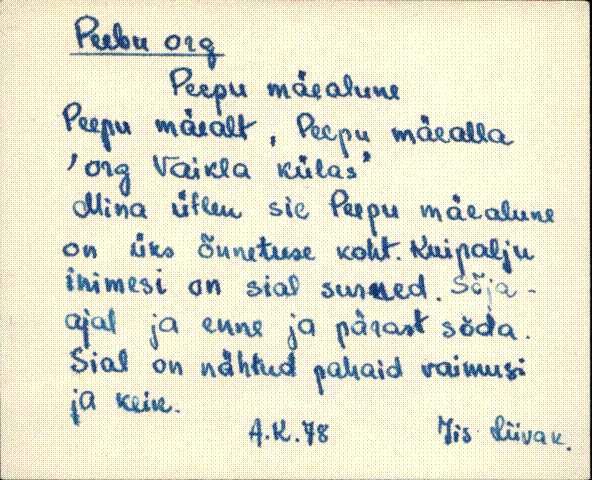 Peebu org
Peepu mäealune
Peepu mäealt, Peepu mäealla
'org Vaikla külas'
Mina ütlen sie Peepu mäealune
on üks õnnetuse koht. Kuipalju
inimesi on sial surned. Sõja-
ajal ja enne ja pärast sõda.
Sial on nähtud pahaid vaimusi
ja keik.
A.K.78 Iis Liivak.